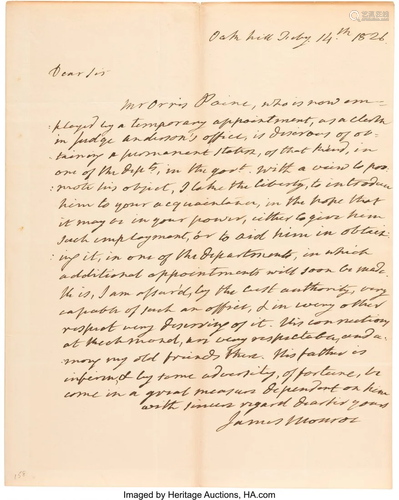 Oak hill Feby 14th 1826
Dear Sir
Mr Orris Paine, who is now em-
ployed by a temporary appointment, as a clerk
in Judge Anderson's office, is desirous of ob-
taining a permanent station, of that kind, in
one of the depts, in the govt. With a view to pro
mote his object, I take the liberty, to introduce
him to your acquaintance, in the hope that
it may be in your power, either to give him
such employment, or to aid him in obtain
ing it, in one of the departments, in which
additional appointments will soon be made.
He is, I am assur'd, by the best authority, very
capable of such an office, & in every other
respect very deserving of it. His connections
at Richmond, are very respectable, and a-
mong my old friends there. His father is
infirm, & by some adversity, of fortune, be
come in a great measure dependent on him
with sincere regard dear Sir yours
James Monroe
Imaged by Heritage Auctions, HA.com